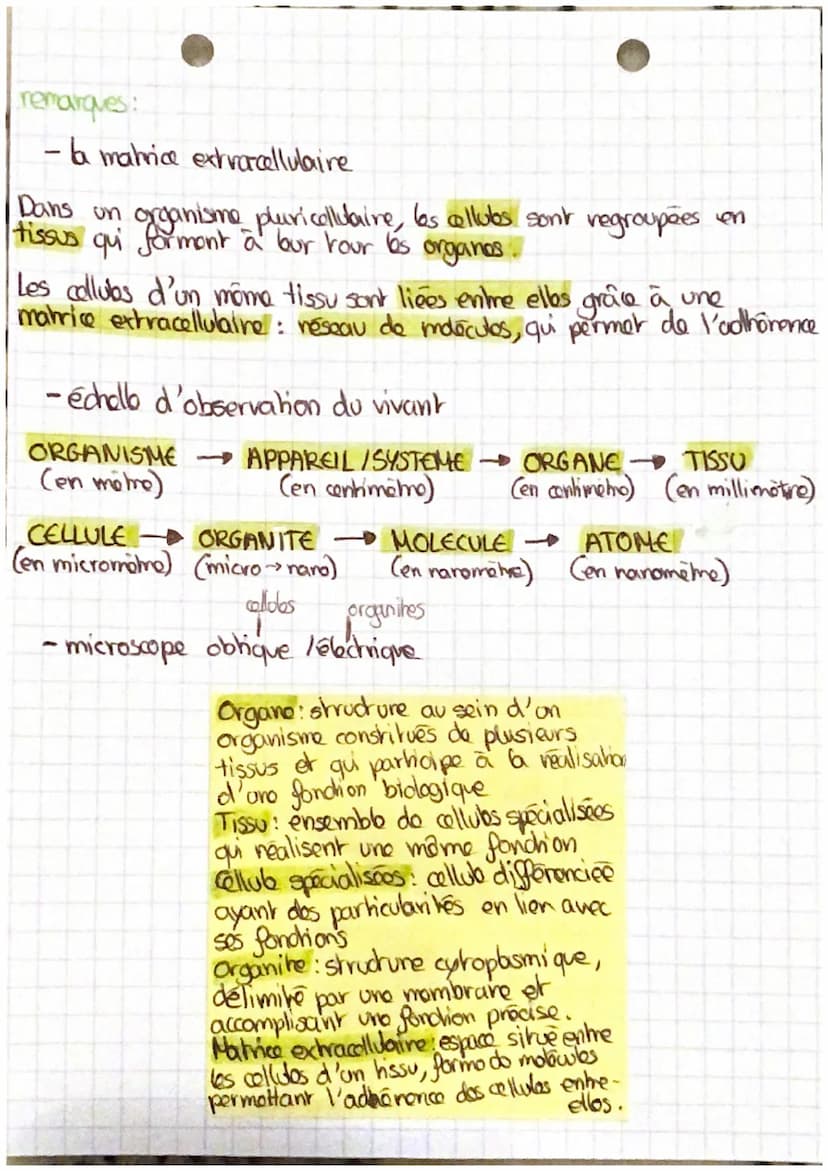 remarques :
- la matrice extracellulaire
Dans un organisme pluricellulaire, les cellules sont regroupées en
tissus qui forment à leur tour les organes.
Les cellules d'un même tissu sont liées entre elles grâce à une
matrice extracellulaire : réseau de molécules, qui permet de l'adhérence
- échelle d'observation du vivant
ORGANISME → APPAREIL / SYSTEME → ORGANE → TISSU
(en mètre) (en centimètre) (en centimètre) (en millimètre)
CELLULE → ORGANITE → MOLECULE → ATOME
(en micromètre) (micro → nano) (en naromètre) (en nanomètre)
cellules organites
- microscope obtique / électrique
Organe : structure au sein d'un
organisme constitués de plusieurs
tissus et qui participe à la réalisation
d'une fonction biologique
Tissu : ensemble de cellules spécialisées
qui réalisent une même fonction
Cellule spécialisées : cellule différenciée
ayant des particularités en lien avec
ses fonctions
Organite : structure cytoplasmique,
délimité par une membrane et
accomplisant une fonction précise.
Matrice extracellulaire : espace situé entre
les cellules d'un tissu, formé de molécules
permettant l'adhérence des cellules entre-
elles.